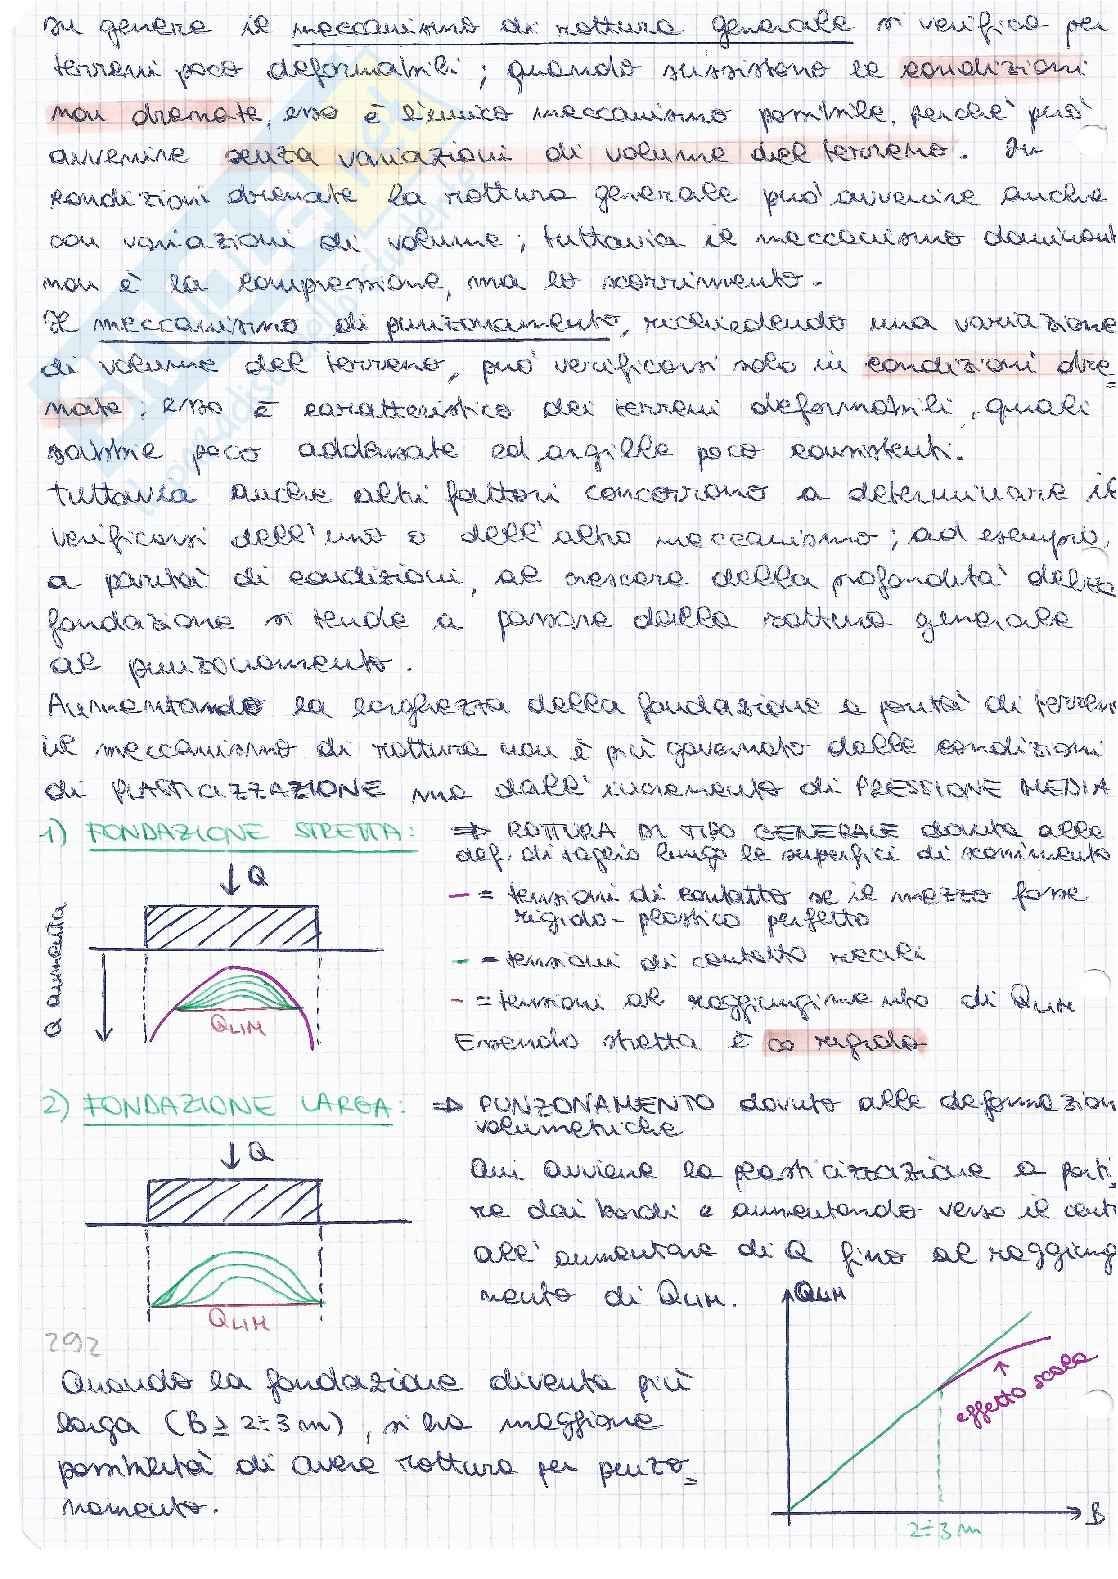 In genere il meccanismo di rottura generale si verifica per
terreni poco deformabili; quando sussistono le condizioni
non drenate, esso è l'unico meccanismo possibile, perché può
avvenire senza variazioni di volume del terreno. In
condizioni drenate la rottura generale può avvenire anche
con variazioni di volume; tuttavia il meccanismo dominant
non è la compressione, ma lo scorrimento.
Il meccanismo di punzonamento, richiedendo una variazione
di volume del terreno, può verificarsi solo in condizioni dre=
nate; esso è caratteristico dei terreni deformabili, quali
sabbie poco addensate ed argille poco consistenti.
Tuttavia anche altri fattori concorrono a determinare il
verificarsi dell'uno o dell'altro meccanismo; ad esempio,
a parità di condizioni, al crescere della profondità della
fondazione si tende a passare dalla rottura generale
al punzonamento.
Aumentando la larghezza della fondazione a parità di terreno
il meccanismo di rottura non è più governato dalle condizioni
di PLASTICIZZAZIONE ma dall'incremento di PRESSIONE MEDIA
1) FONDAZIONE STRETTA: => ROTTURA DI TIPO GENERALE dovuta alle
def. di taglio lungo le superfici di scorrimento
Q
Q aumenta
- = tensioni di contatto se il mezzo fosse
rigido-plastico perfetto
- = tensioni di contatto reali
- = tensioni al raggiungimento di QLIM
QLIM
Essendo stretta è ∞ rigida
2) FONDAZIONE LARGA: => PUNZONAMENTO dovuto alle deformazion
volumetriche
Q
Qui avviene la plasticizzazione a parti
re dai bordi e aumentando verso il cent
all'aumentare di Q fino al raggiung
mento di QLIM.
QLIM
292
Quando la fondazione diventa più
larga (B ≥ 2÷3 m), si ha maggiore
possibilità di avere rottura per punzo=
namento.
QLIM
effetto scala
B
2÷3 m